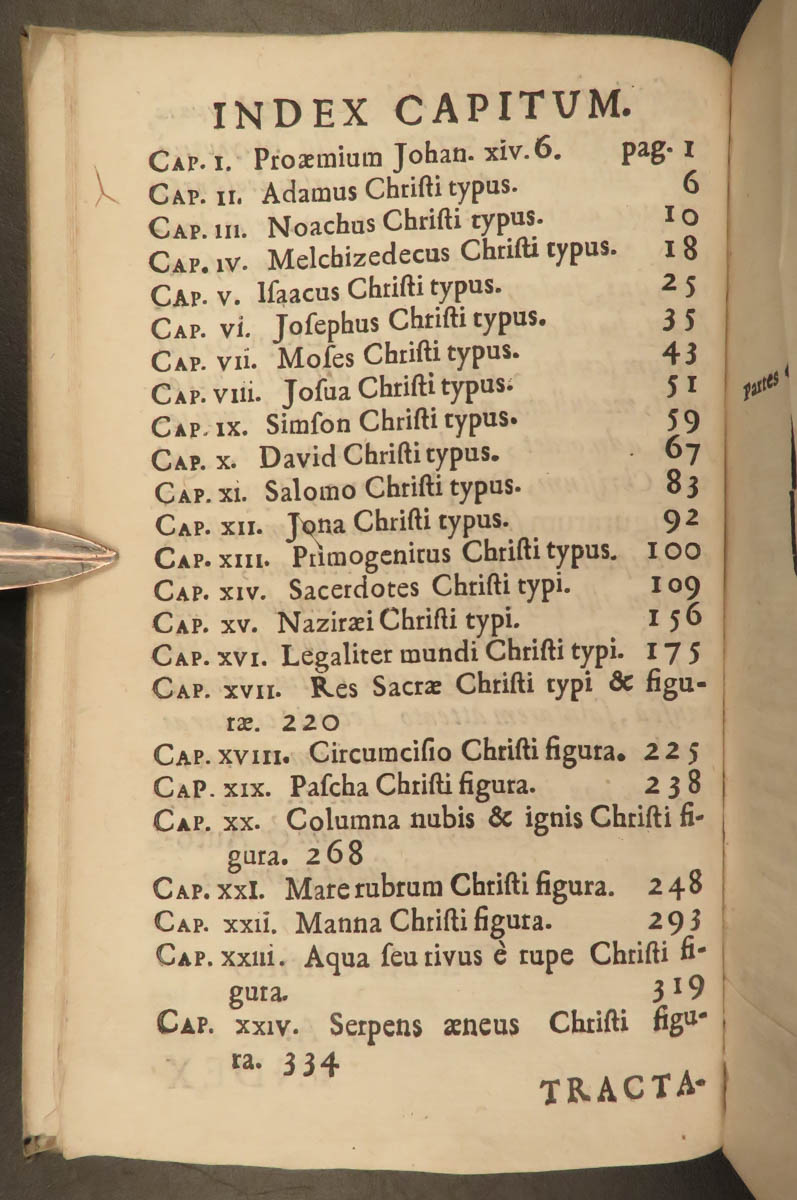 INDEX CAPITUM.
CAP. I. Proæmium Johan. xiv. 6. pag. 1
CAP. II. Adamus Chriſti typus. 6
CAP. III. Noachus Chriſti typus. 10
CAP. IV. Melchizedecus Chriſti typus. 18
CAP. V. Iſaacus Chriſti typus. 25
CAP. VI. Joſephus Chriſti typus. 35
CAP. VII. Moſes Chriſti typus. 43
CAP. VIII. Joſua Chriſti typus. 51
CAP. IX. Simſon Chriſti typus. 59
CAP. X. David Chriſti typus. 67
CAP. XI. Salomo Chriſti typus. 83
CAP. XII. Jona Chriſti typus. 92
CAP. XIII. Primogenitus Chriſti typus. 100
CAP. XIV. Sacerdotes Chriſti typi. 109
CAP. XV. Naziræi Chriſti typi. 156
CAP. XVI. Legaliter mundi Chriſti typi. 175
CAP. XVII. Res Sacræ Chriſti typi & figu-
ræ. 220
CAP. XVIII. Circumciſio Chriſti figura. 225
CAP. XIX. Paſcha Chriſti figura. 238
CAP. XX. Columna nubis & ignis Chriſti fi-
gura. 268
CAP. XXI. Mare rubrum Chriſti figura. 248
CAP. XXII. Manna Chriſti figura. 293
CAP. XXIII. Aqua ſeu rivus è rupe Chriſti fi-
gura. 319
CAP. XXIV. Serpens æneus Chriſti figu-
ra. 334
TRACTA-
Partes